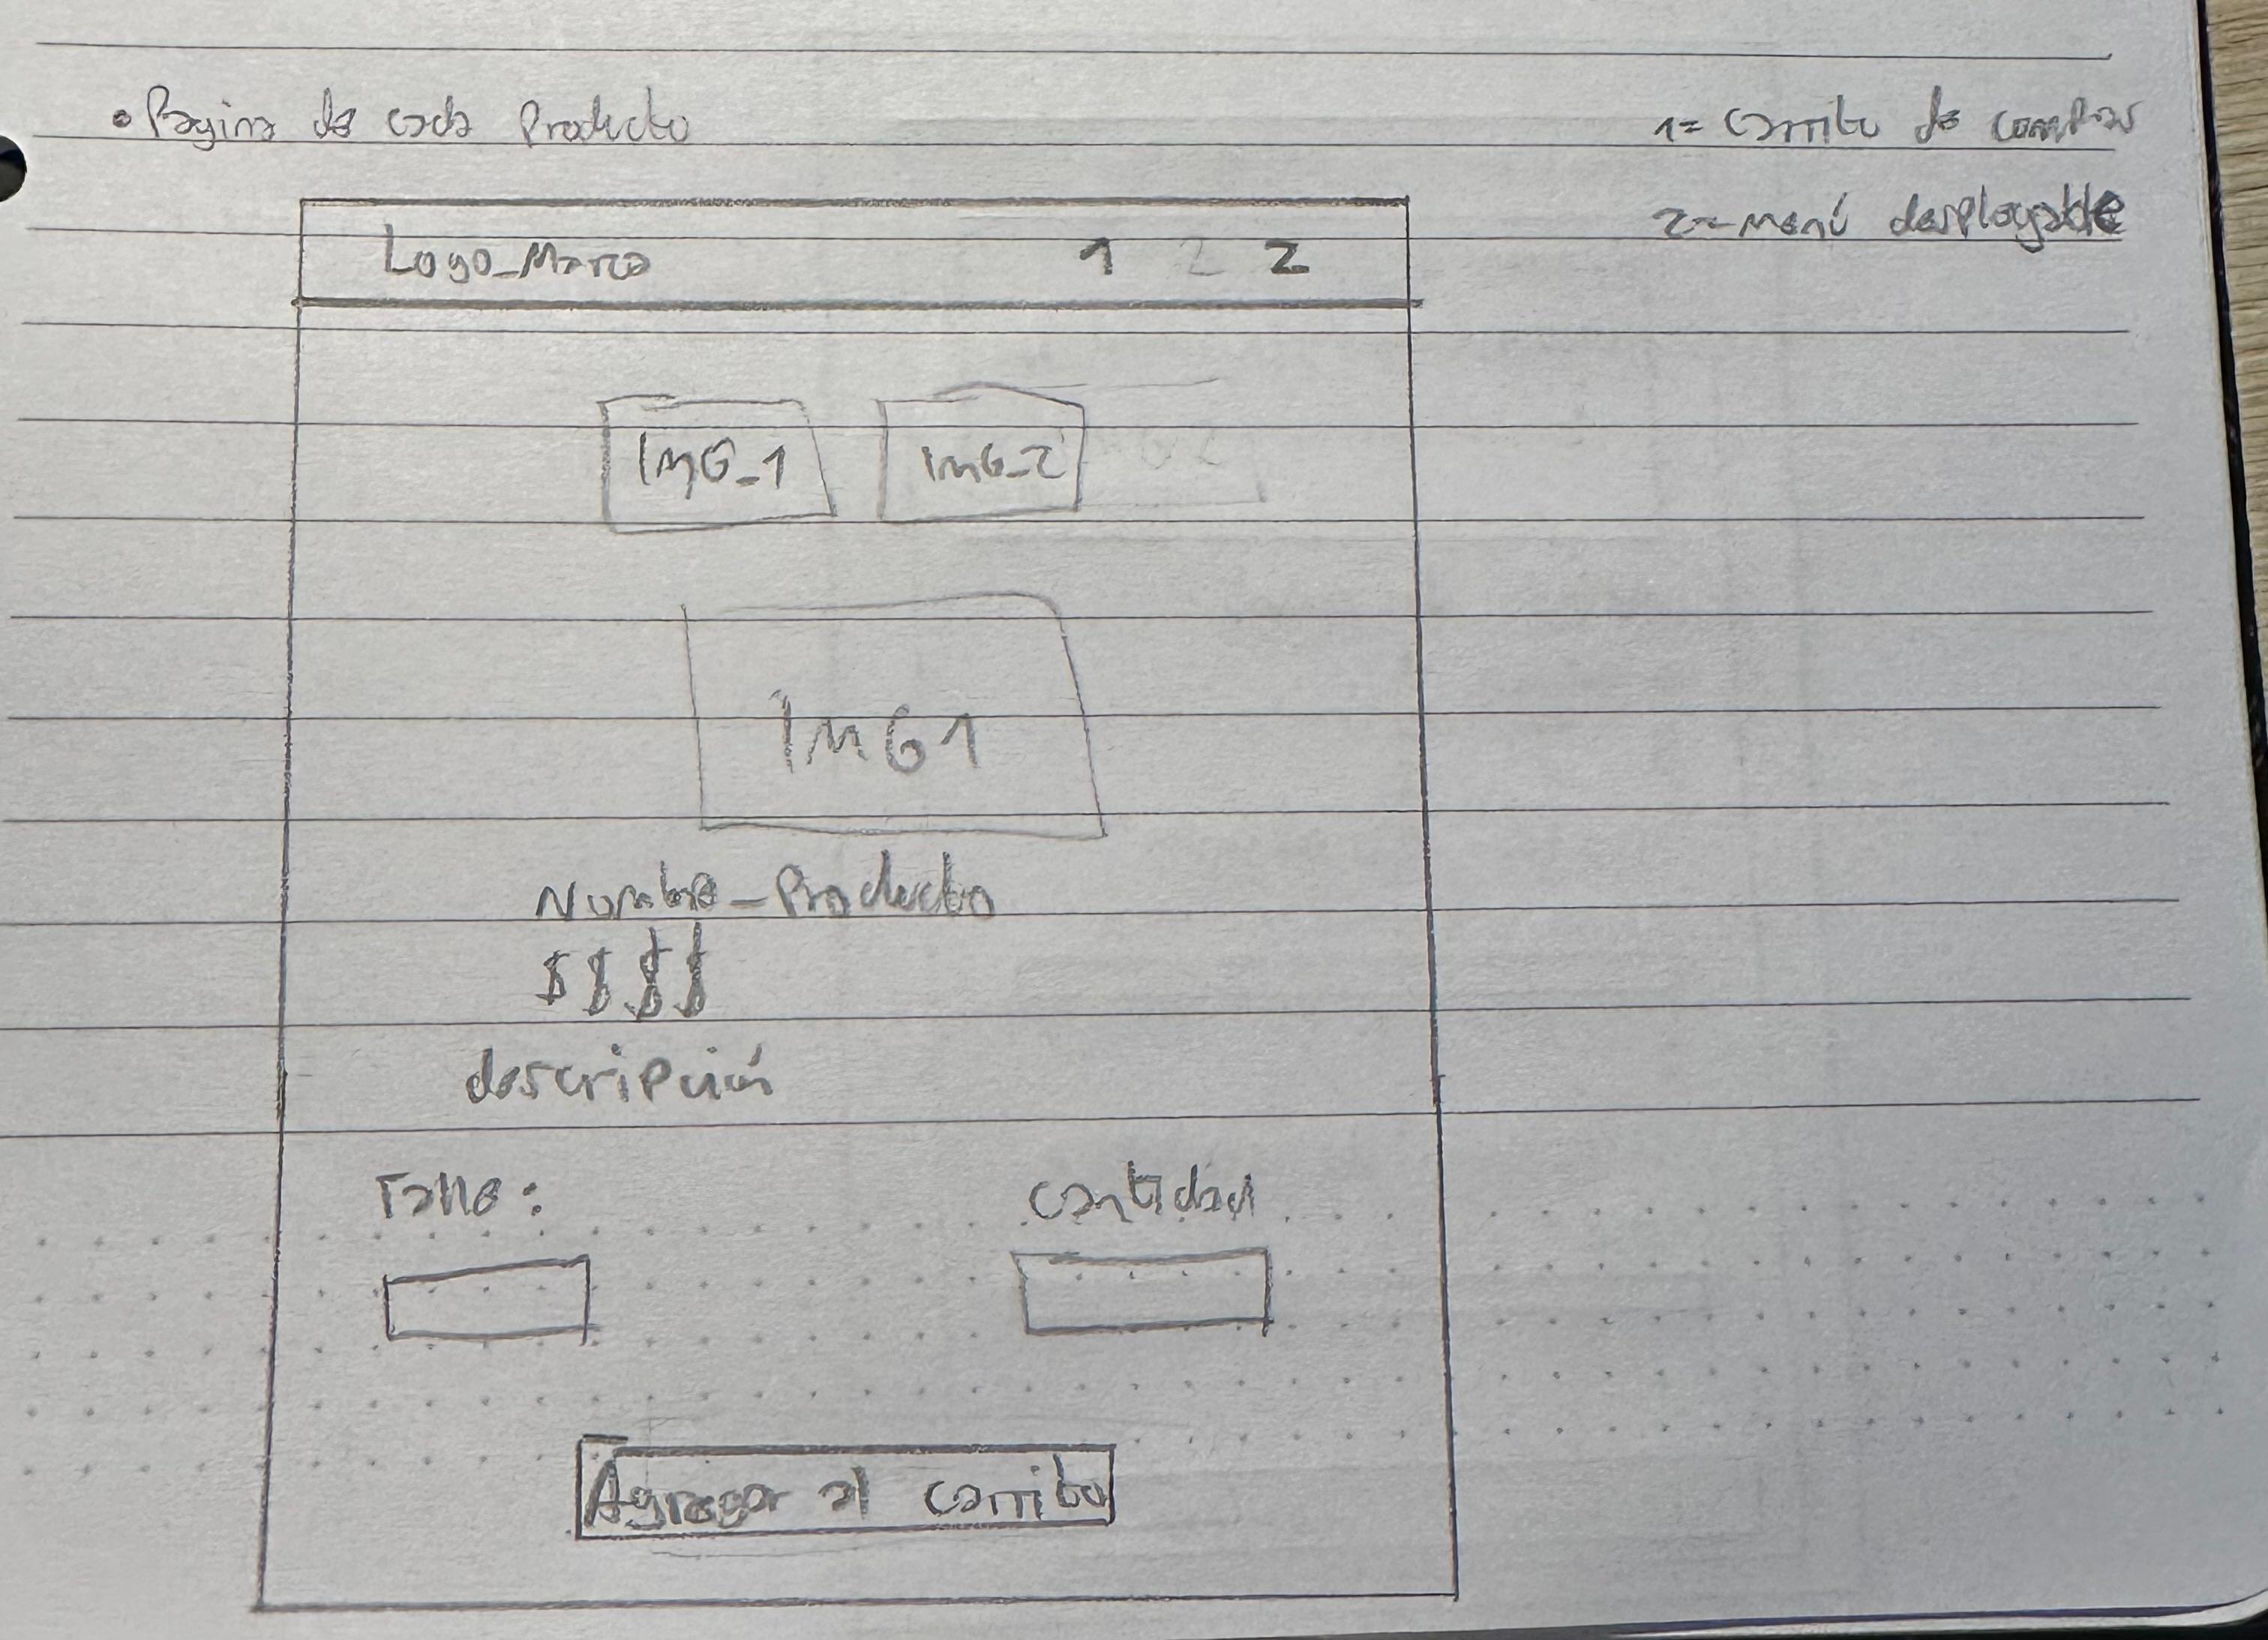 • Pagina de cada Producto
1= carrito de compras
2= menú desplegable
Logo_Marca 1 2 2
IMG_1 IMG_2
IMG1
Nombre_Producto
$$$$
descripción
Talle: cantidad
Agregar al carrito